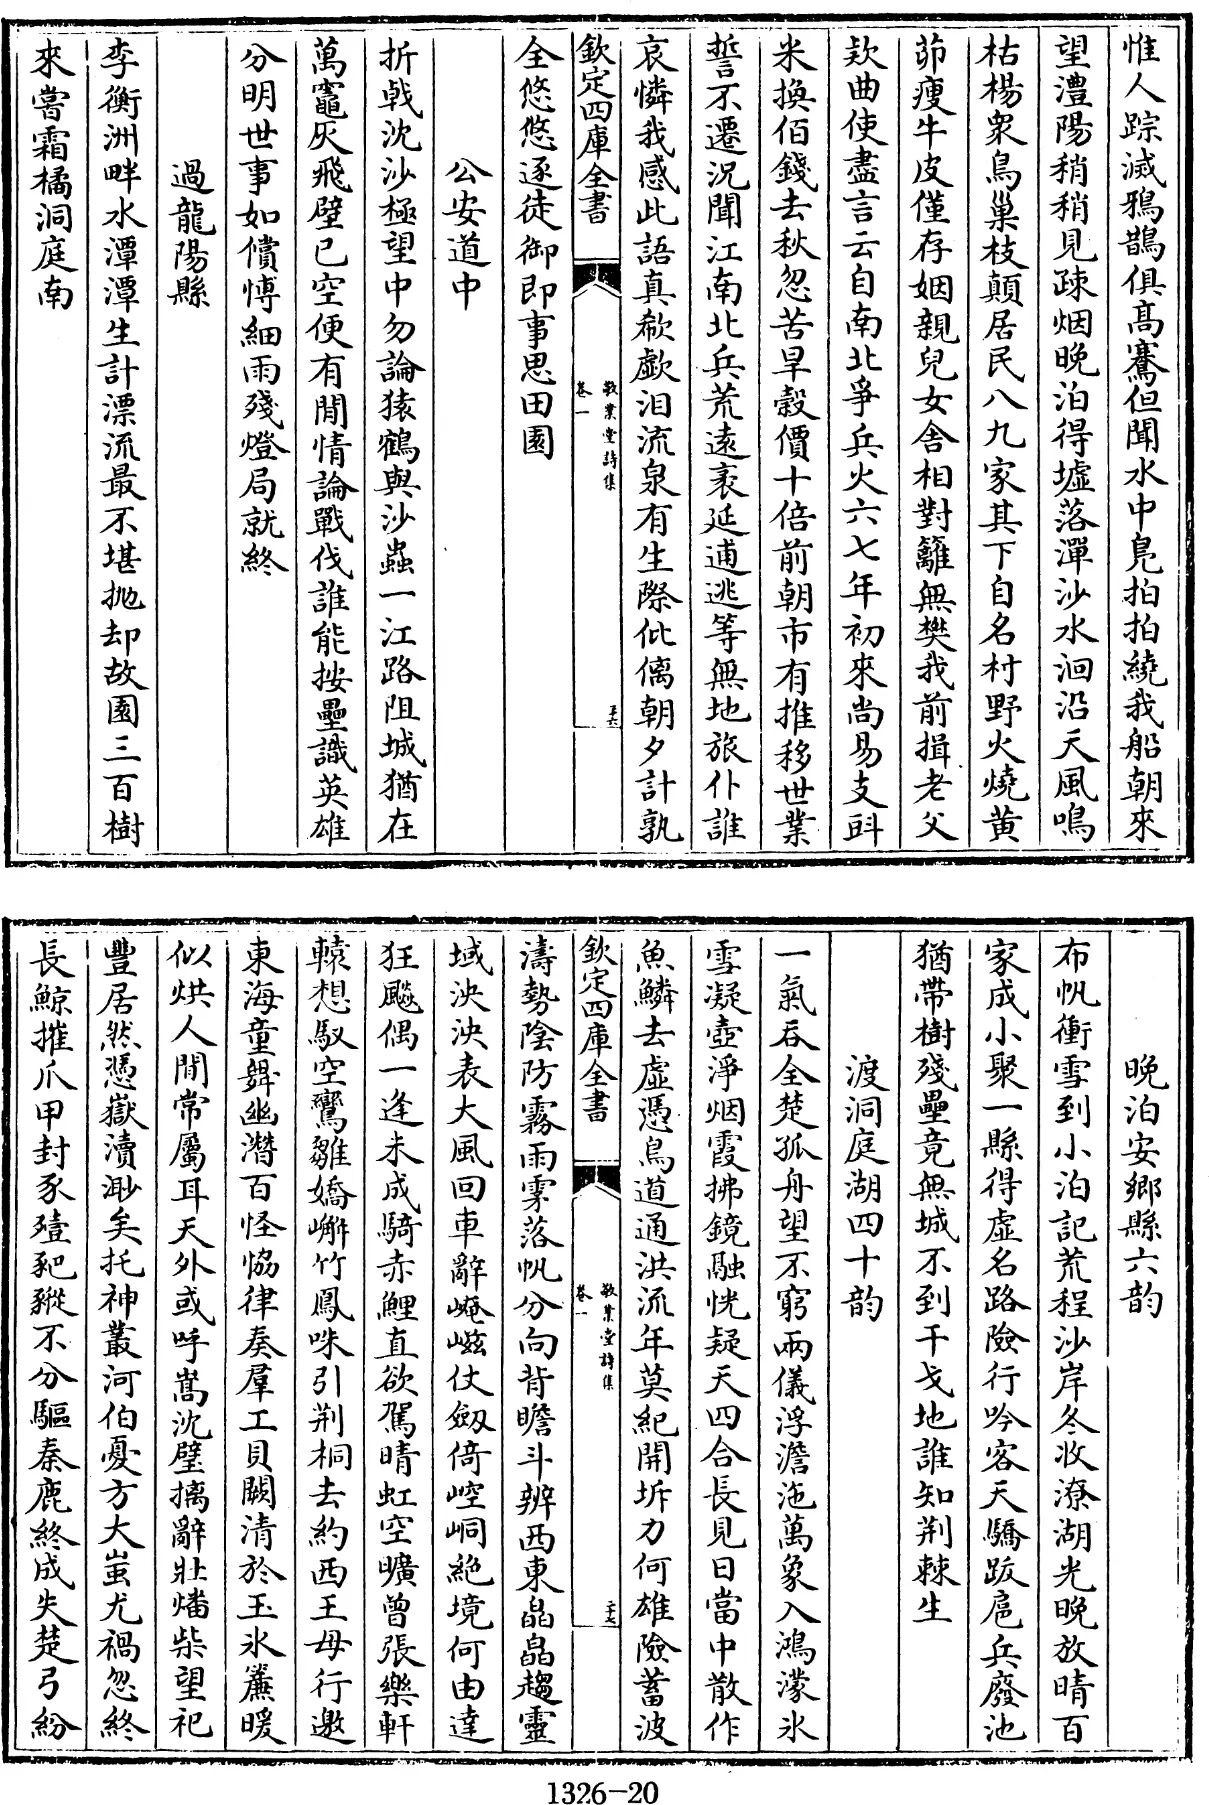 惟人踪滅鴉鵲俱高騫但聞水中鳧拍拍繞我船朝來
望澧陽稍稍見疎烟晚泊得墟落潬沙水洄沿天風鳴
枯楊衆鳥巢枝顛居民八九家其下自名村野火燒黄
茆瘦牛皮僅存姻親兒女舍相對籬無樊我前揖老父
欵曲使盡言云自南北爭兵火六七年初來尚易支斟
米換佰錢去秋忽苦旱穀價十倍前朝市有推移世業
誓不遷況聞江南北兵荒遠袤延逋逃等無地旅仆誰
哀憐我感此語真欷歔泪流泉有生際仳㒧朝夕計孰
欽定四庫全書
敬業堂詩集
卷一
二十六
全悠悠逐徒御即事思田園
公安道中
折戟沈沙極望中勿論猿鶴與沙蟲一江路阻城猶在
萬竈灰飛壁已空便有閒情論戰伐誰能按壘識英雄
分明世事如償愽細雨殘燈局就終
過龍陽縣
李衡洲畔水潭潭生計漂流最不堪抛却故園三百樹
來嘗霜橘洞庭南
晚泊安鄉縣六韵
布帆衝雪到小泊記荒程沙岸冬收潦湖光晚放晴百
家成小聚一縣得虚名路險行吟客天驕跋扈兵廢池
猶帶樹殘壘竟無城不到干戈地誰知荆棘生
渡洞庭湖四十韵
一氣吞全楚孤舟望不窮兩儀浮澹沲萬象入鴻濛氷
雪凝壺淨烟霞拂鏡融恍疑天四合長見日當中散作
魚鱗去虚憑鳥道通洪流年莫紀開坼力何雄險蓄波
欽定四庫全書
敬業堂詩集
卷一
二十七
濤勢陰防霧雨霿落帆分向背瞻斗辨西東皛皛趨靈
域泱泱表大風回車辭崦嵫仗劔倚崆峒絶境何由達
狂飈偶一逢未成騎赤鯉直欲駕晴虹空曠曾張樂軒
轅想馭空鸞雛嬌嶰竹鳳咮引荆桐去約西王母行邀
東海童舞幽潛百怪恊律奏羣工貝闕清於玉氷簾暖
似烘人間常屬耳天外或呼嵩沈璧摛辭壯燔柴望祀
豐居然憑嶽瀆渺矣托神叢河伯憂方大蚩尤禍忽終
長鯨摧爪甲封豕殪豝豵不分驅秦鹿終成失楚弓紛
1326-20